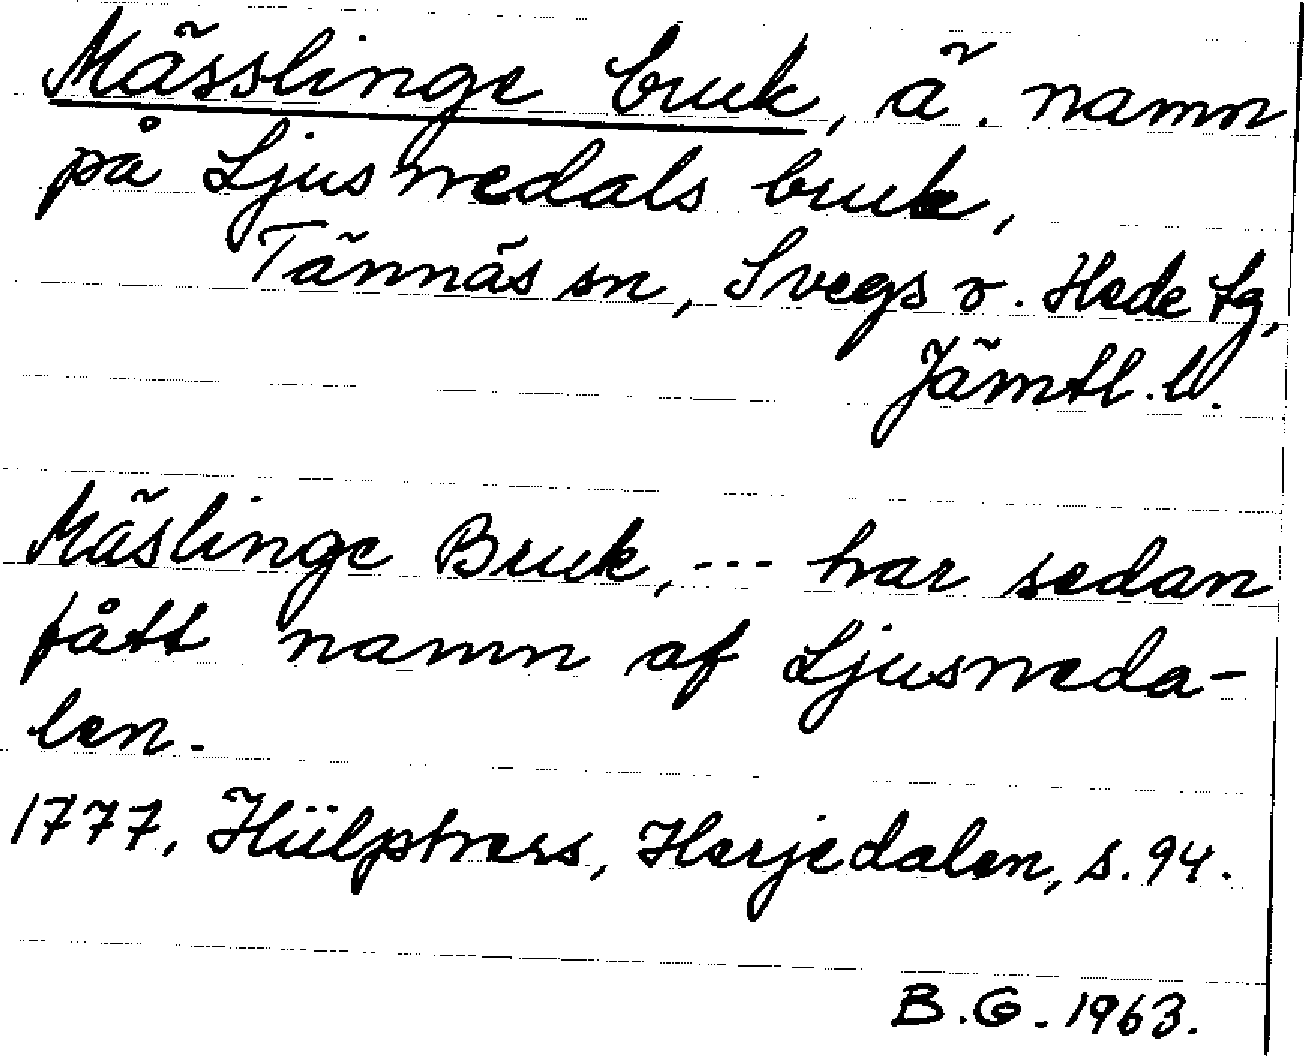 Mässlinge bruk, ä. namn
på Ljusnedals bruk,
Tännäs sn, Svegs o. Hede tg,
Jämtl. l.
Mäslinge Bruk, --- har sedan
fått namn af Ljusneda-
len.
1777, Hülphers, Herjedalen, s. 94.
B.G. 1963.